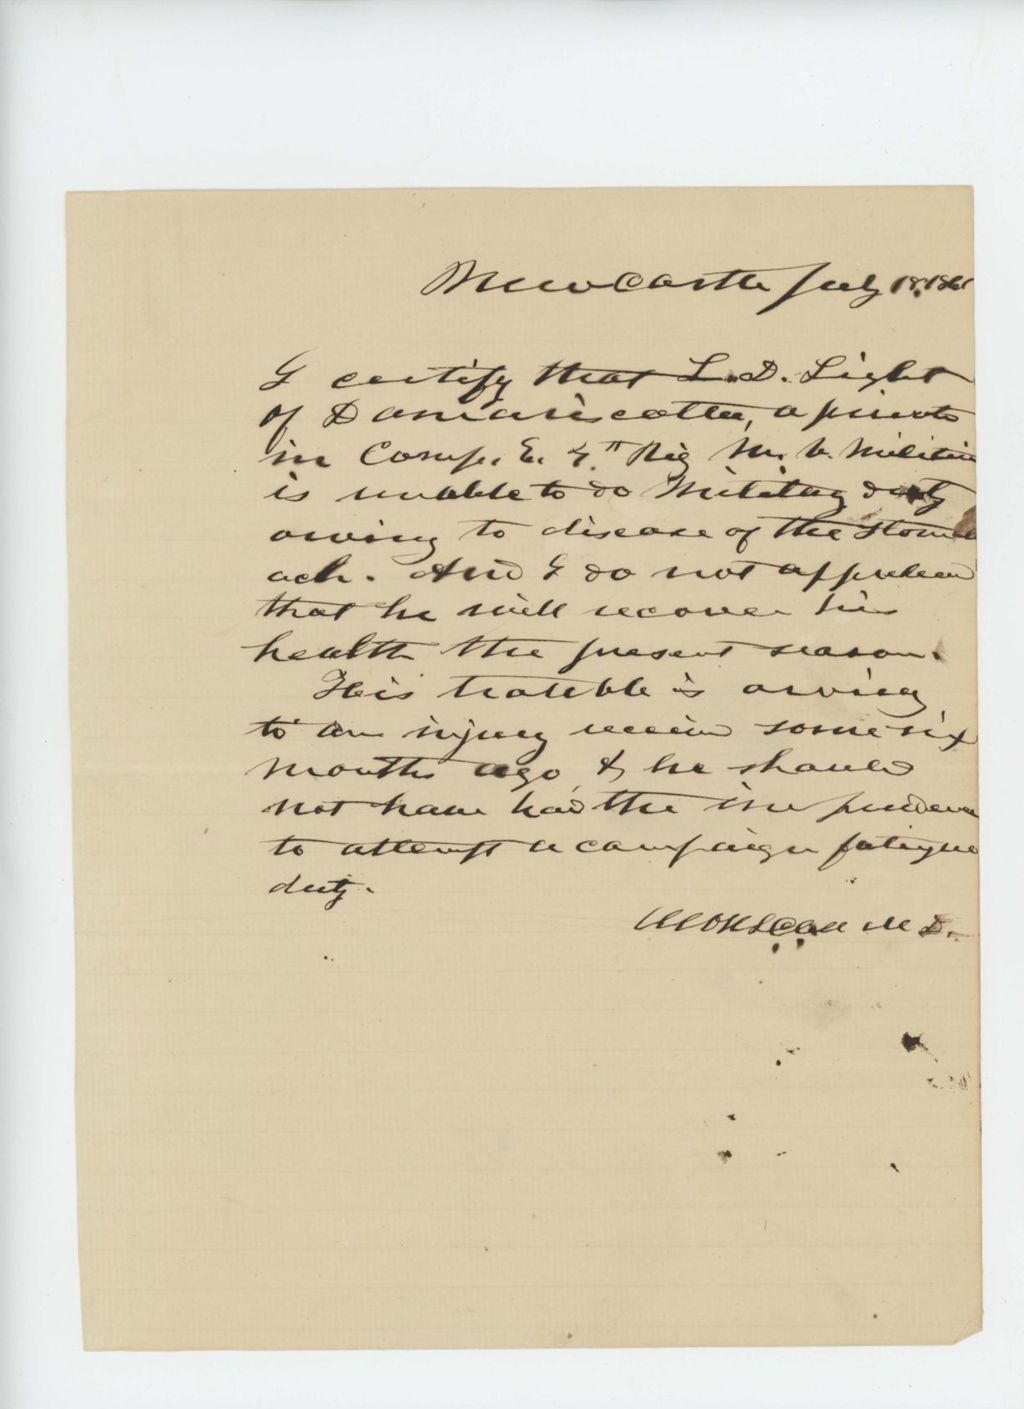 New Castle July 18, 1861
I certify that L. D. Light
of Damariscotta, a private
in Comp. E. 4th Reg M. V. Militia
is unable to do Military duty
owing to disease of the Stom
ach. And I do not apprehend
that he will recover his
health the present season.
His trouble is owing
to an injury received some six
months ago, & he should
not have had the imprudence
to attempt a campaign fatigue
duty.
M. D.